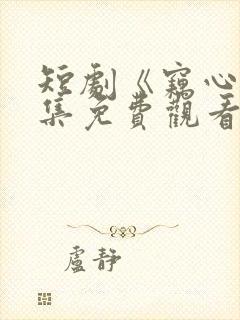 短劇《竊心
集免費觀看
盧靜